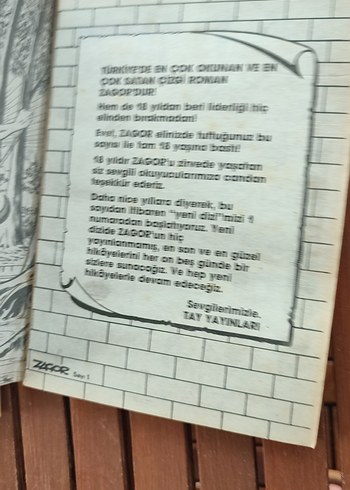 TÜRKİYE'DE EN ÇOK OKUNAN VE EN
ÇOK SATAN ÇİZGİ ROMAN
ZAGOR'DUR!
Hem de 18 yıldan beri liderliği hiç
elinden bırakmadan!
Evet, ZAGOR elinizde tuttuğunuz bu
sayısı ile tam 18 yaşına bastı!
18 yıldır ZAGOR'u zirvede yaşatan
siz sevgili okuyucularımıza candan
teşekkür ederiz.
Daha nice yıllara diyerek, bu
sayıdan itibaren "yeni dizi"mizi 1
numaradan başlatıyoruz. Yeni
dizide ZAGOR'un hiç
yayınlanmamış, en son ve en güzel
hikâyelerini her on beş günde bir
sizlere sunacağız. Ve hep yeni
hikâyelerle devam edeceğiz.
Sevgilerimizle.
TAY YAYINLARI
ZAGOR Sayı: 1